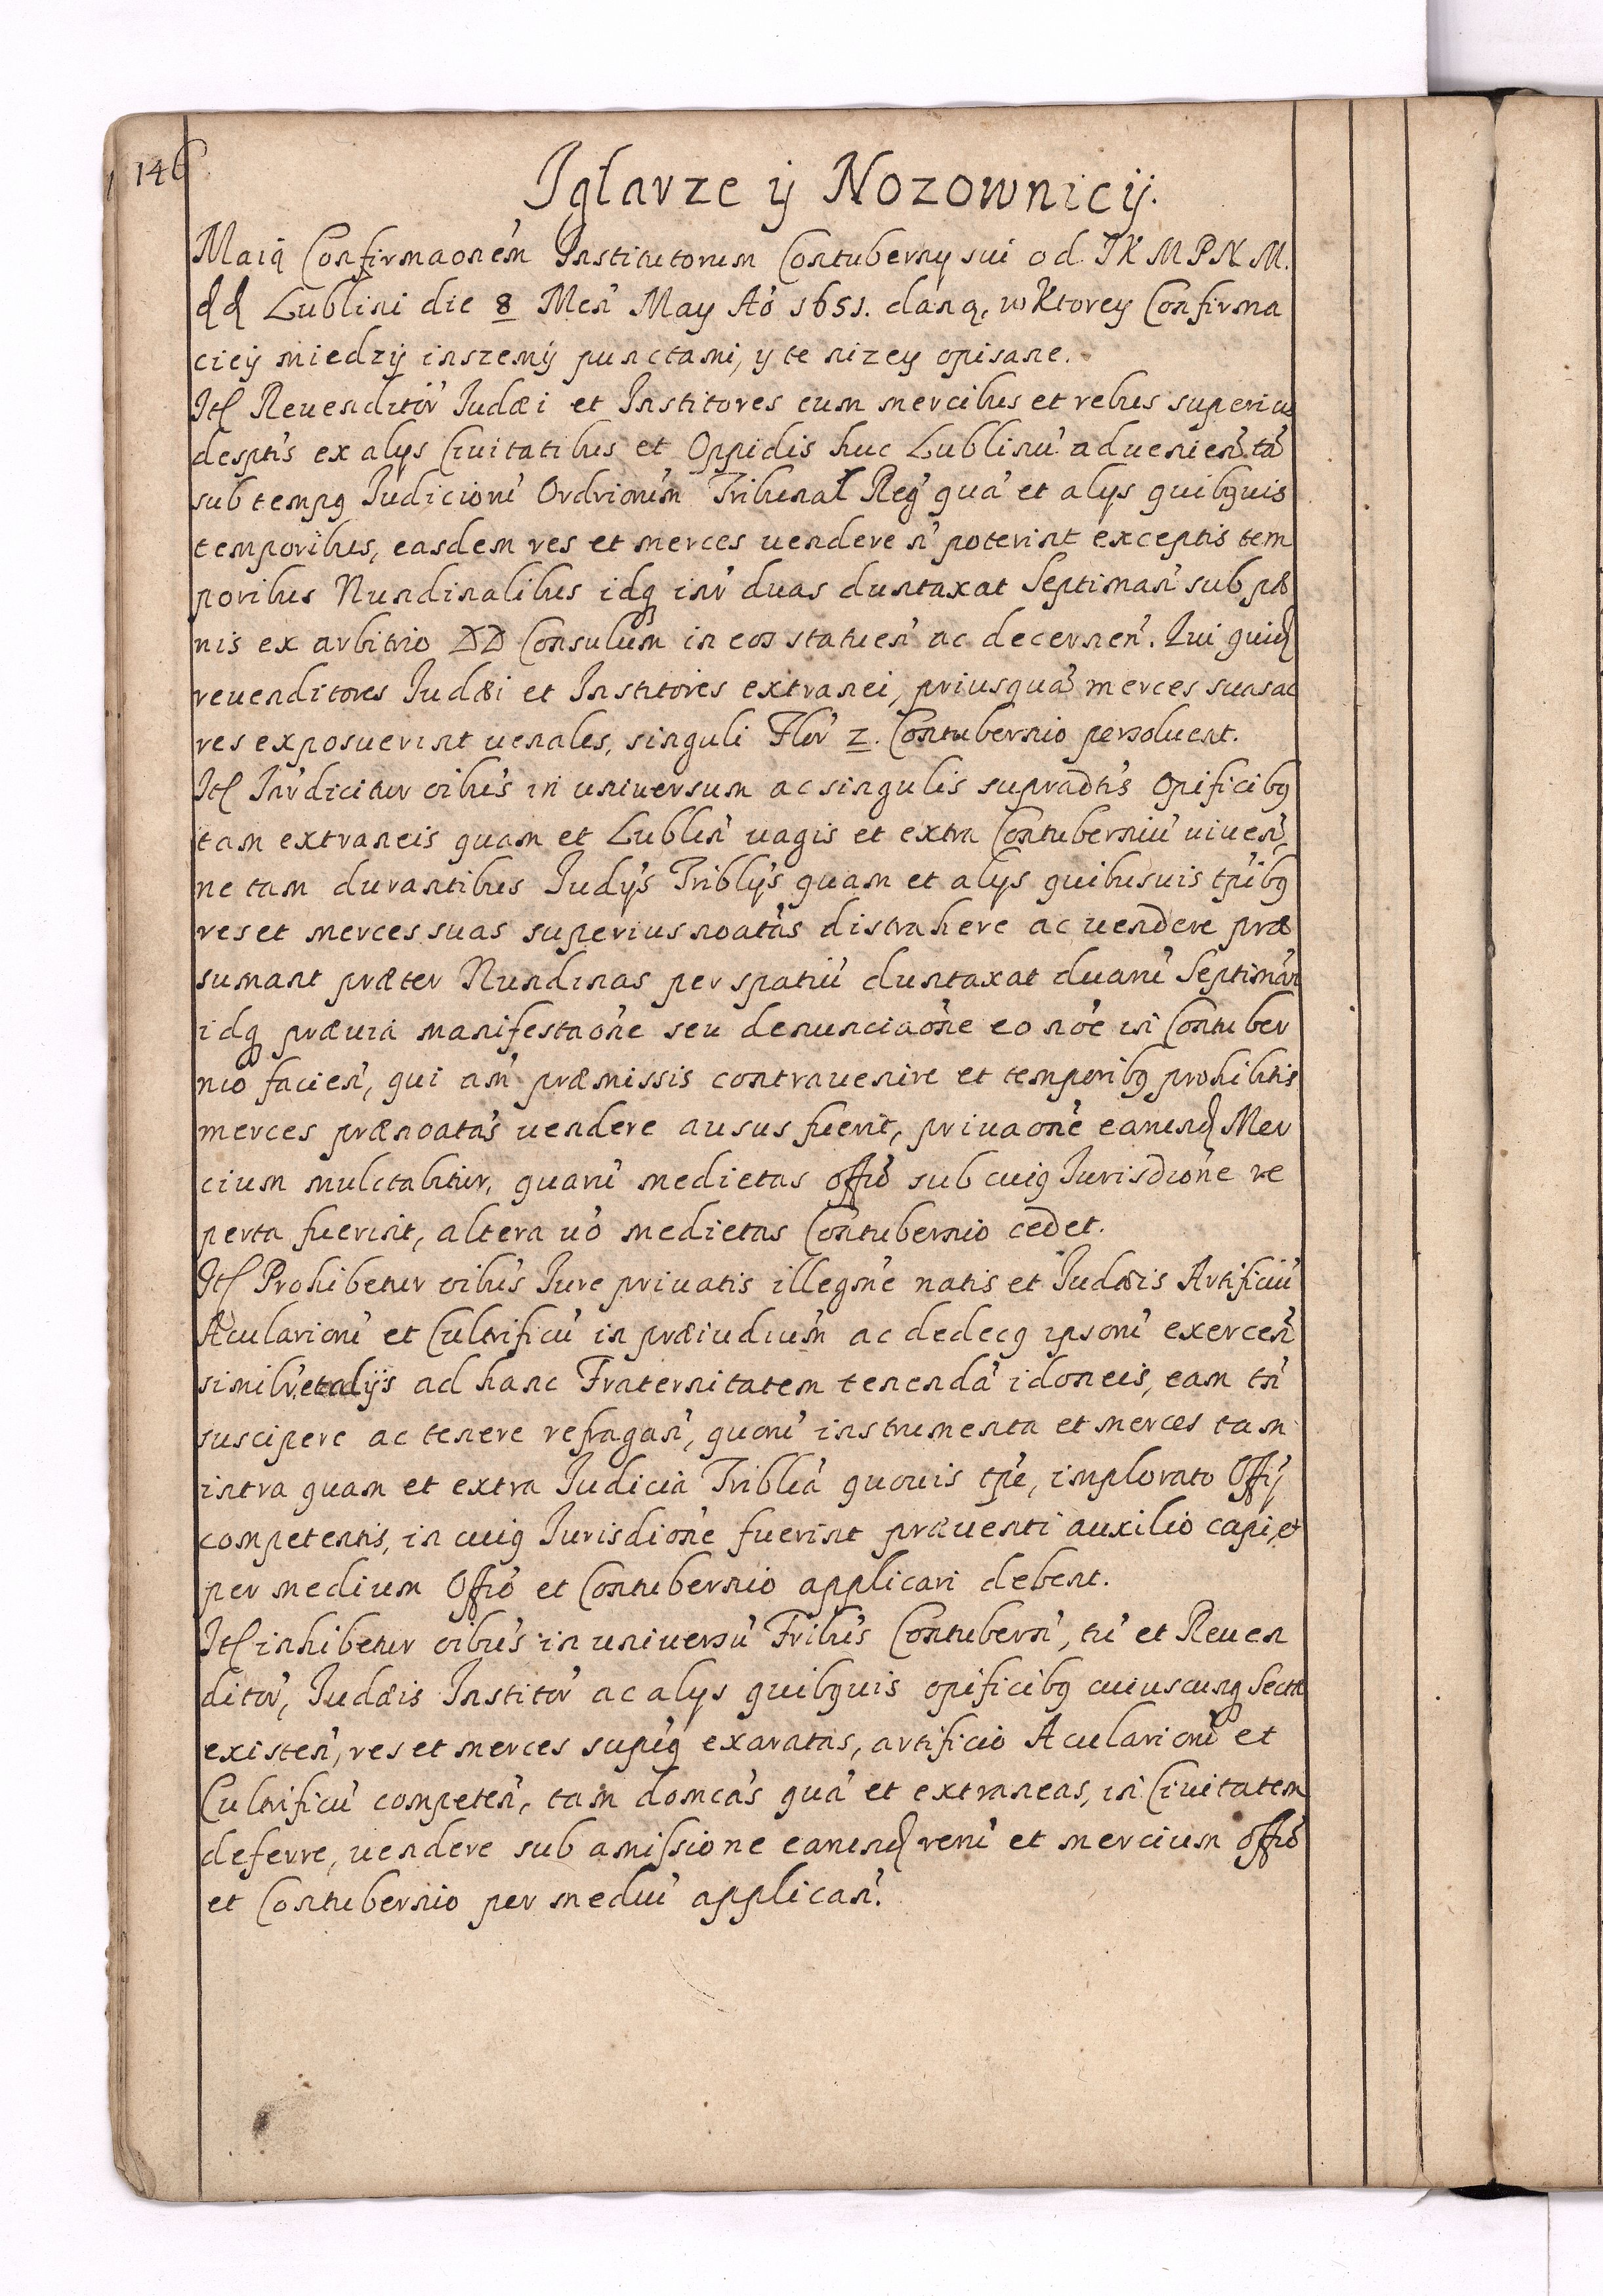 146
Jglarze ÿ Nozownicÿ.
Maią Confirmaonem Institutorum Contuberny sui od JKMPNM.
dd Lublini die 8 Men May Ao 1651. daną, w Ktorey Confirma
cieÿ miedzÿ inszemÿ punctami, y te nizey opisane.
Itl Reuenditor Iudæi et Institores cum mercibus et rebus superius
desptis ex alys Ciuitatibus et Oppidis huc Lublinu aduenien ta
sub tempq Iudicioru Ordriorum Tribunal Reg qua et alys quibquis
temporibus, easdem res et merces uendere n poterint exceptis tem
poribus Nundinalibus idq inr duas duntaxat Septiman sub pæ
nis ex arbitrio DD Consulum in eos statuen ac decernen. Qui quid
reuenditores Iudæi et Institores extranei, priusqua merces suas ac
res exposuerint uenales, singuli Flor 2. Contubernio persoluent.
Itl Inrdicitur oibus in uniuersum ac singulis supradtis Opificibq
tam extraneis quam et Lublin uagis et extra Contuberniu uiuen,
ne tam durantibus Iudijs Triblys quam et alys quibusuis tpibq
res et merces suas superius noatas distrahere ac uendere præ
sumant præter Nundinas per spatiu duntaxat duaru Septiman
idq præuia manifestaone seu denunciaone eo noe in Contuber
nio facien, qui am præmissis contrauenire et temporibq prohibitis
merces prænoatas uendere ausus fuerit, priuaone earund Mer
cium mulctabitur, quaru medietas offio sub cuiq Iurisdione re
perta fuerint, altera uo medietas Contubernio cedet.
Itl Prohibetur oibus Iure priuatis illegme natis et Iudæis Artificiu
Acularioru et Cultrificu in præiudium ac dedecq ipsoru exercen
similr et alÿs ad hanc Fraternitatem tenenda idoneis, eam tn
suscipere ac tenere refragan, quoru instrumenta et merces tam
intra quam et extra Iudicia Triblia quouis tpe, implorato Offij
competentis, in cuiq Iurisdione fuerint præuenti auxilio capi, et
per medium Offio et Contubernio applicari debent.
Itl inhibetur oibus in uniuersu Fribus Contubern, tu et Reuen
ditor, Iudæis Institor ac alys quibquis opificibq cuiuscunq Sectæ
existen, res et merces supiq exaratas, artificio Acularioru et
Cultrificu competen, tam domcas qua et extraneas, in Ciuitatem
deferre, uendere sub amissione earund reru et mercium offio
et Contubernio per mediu applican.